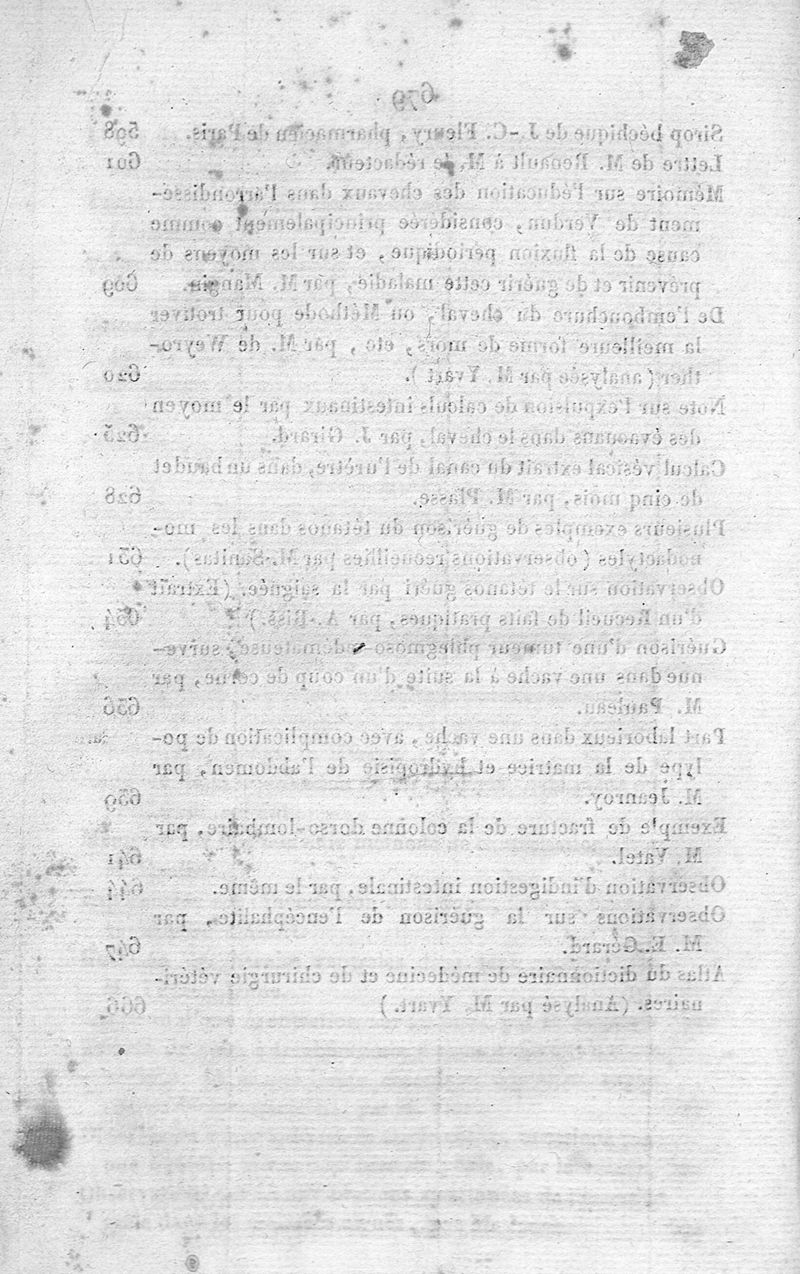 679
Sirop béchique de J.-C. Fleury, pharmacien de Paris. 598
Lettre de M. Renault à M. le rédacteur. 601
Mémoire sur l'éducation des chevaux dans l'arrondisse-
ment de Verdun, considérée principalement comme
cause de la fluxion périodique, et sur les moyens de
prévenir et de guérir cette maladie, par M. Mangin. 609
De l'embouchure du cheval, ou Méthode pour trouver
la meilleure forme de mors, etc, par M. de Weyro-
ther (analysée par M. Yvart). 620
Note sur l'expulsion de calculs intestinaux par le moyen
des évacuans dans le cheval, par J. Girard. 625
Calcul vésical extrait du canal de l'urètre, dans un baudet
de cinq mois, par M. Plasse. 628
Plusieurs exemples de guérison du tétanos dans les mo-
nodactyles (observations recueillies par M. Sanitas). 631
Observation sur le tétanos guéri par la saignée. (Extrait
d'un Recueil de faits pratiques, par A. Riss.) 634
Guérison d'une tumeur phlegmoso-œdémateuse, surve-
nue dans une vache à la suite d'un coup de corne, par
M. Pauleau. 636
Part laborieux dans une vache, avec complication de po-
lype de la matrice et hydropisie de l'abdomen, par
M. Jeanroy. 639
Exemple de fracture de la colonne dorso-lombaire, par
M. Vatel. 641
Observation d'indigestion intestinale, par le même. 644
Observations sur la guérison de l'encéphalite, par
M. E. Gérard. 647
Atlas du dictionnaire de médecine et de chirurgie vétéri-
naires. (Analysé par M. Yvart.) 666